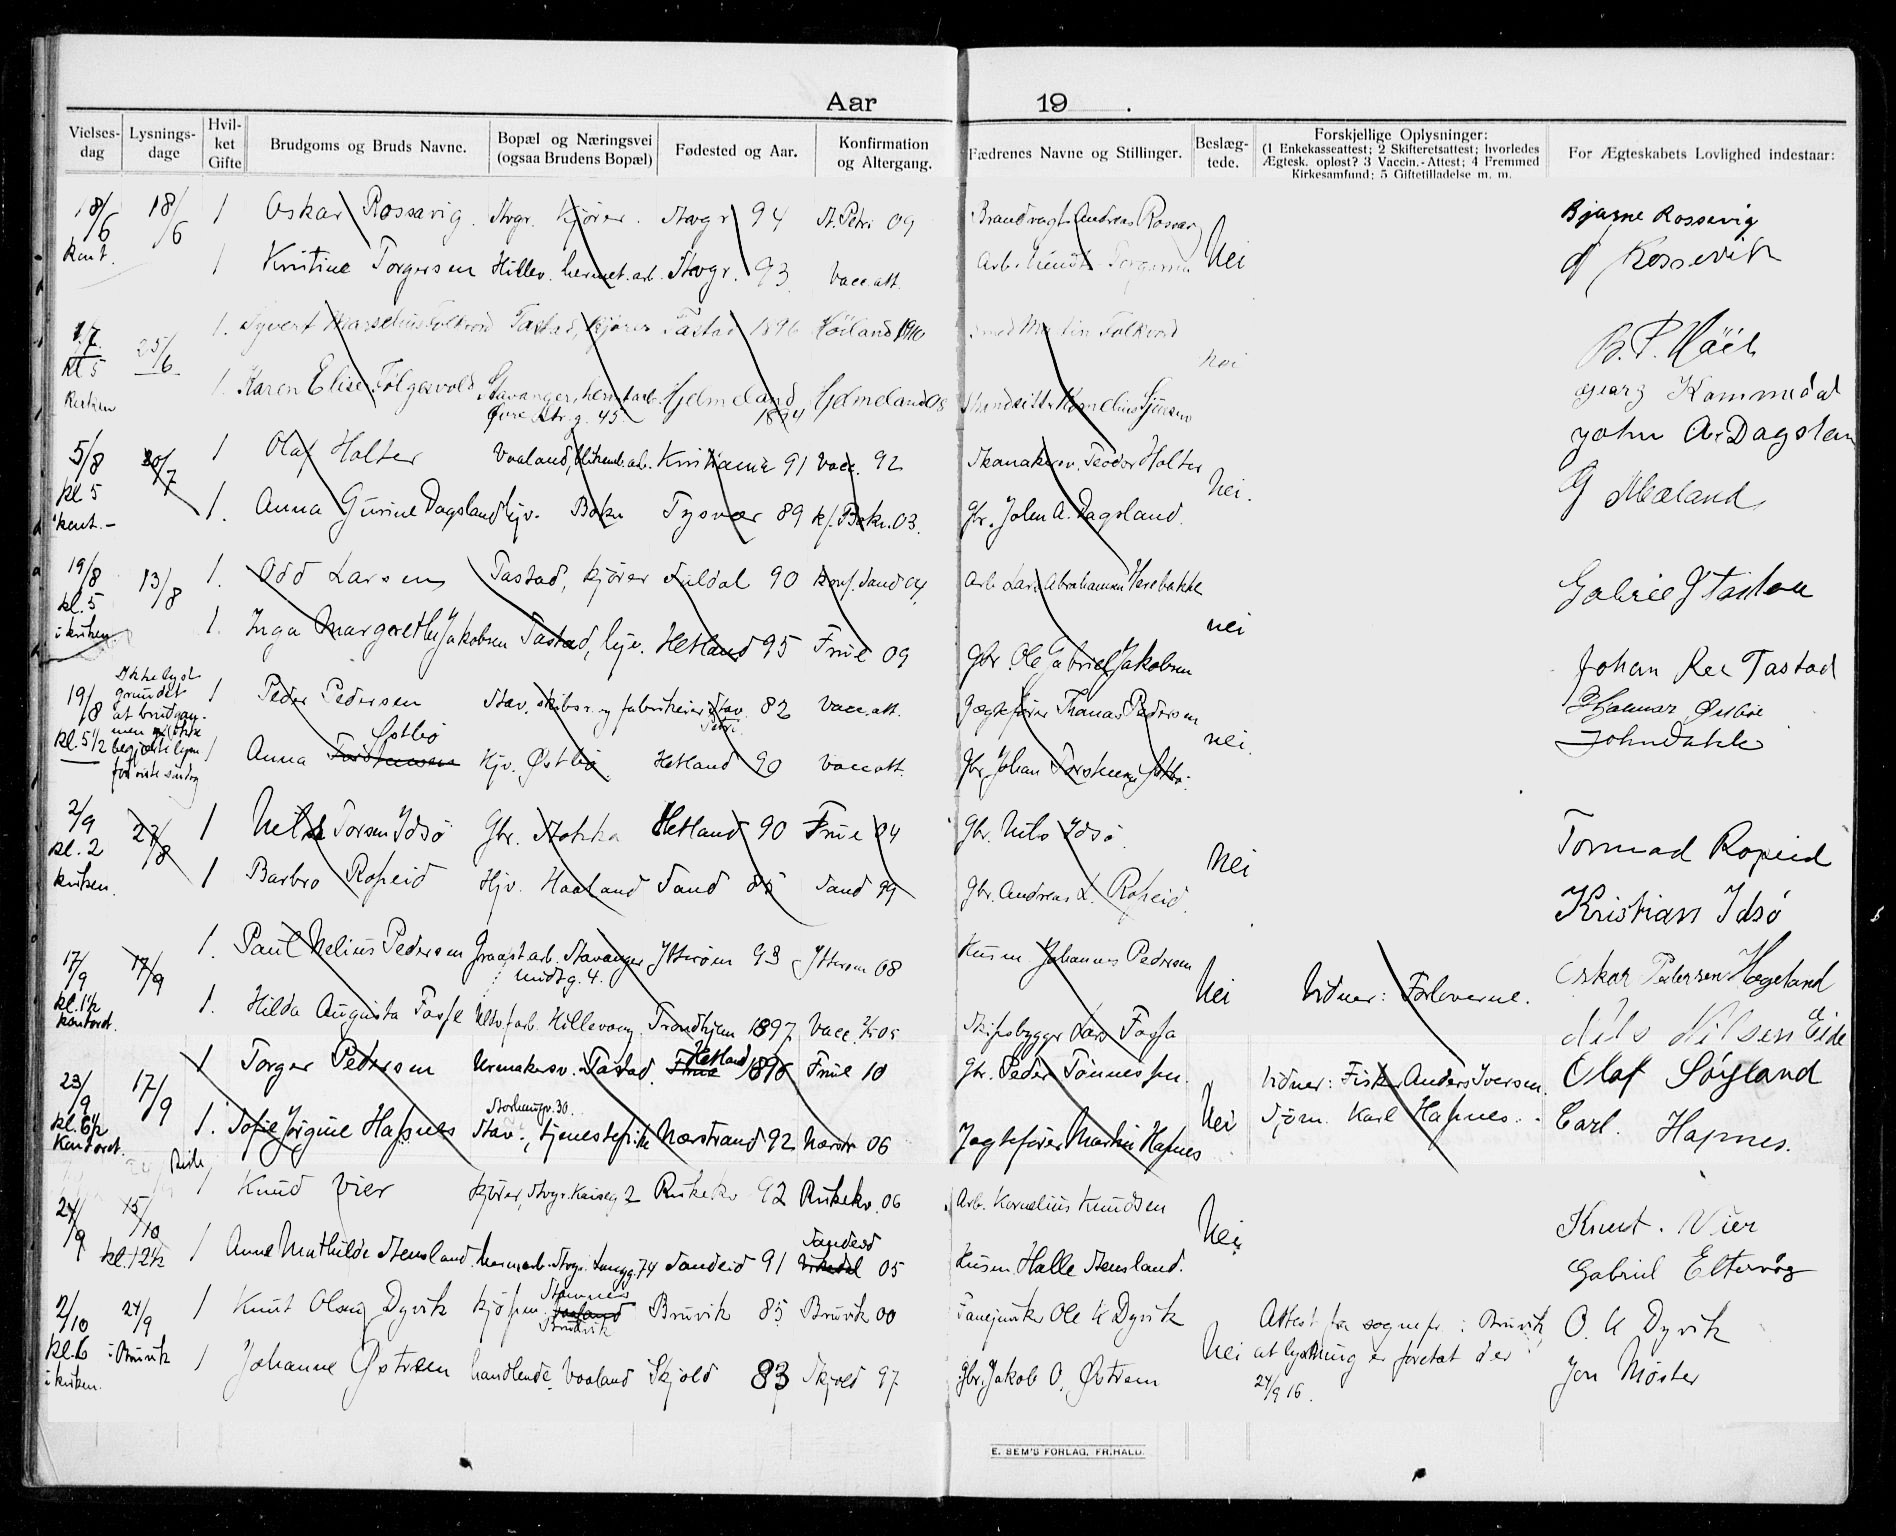 Aar 19 .
Vielses-dag Lysnings-dage Hvil-ket Gifte Brudgoms og Bruds Navne. Bopæl og Næringsvei (ogsaa Brudens Bopæl) Fødested og Aar. Konfirmation og Altergang. Fædrenes Navne og Stillinger. Beslæg-tede. Forskjellige Oplysninger: (1 Enkekasseattest; 2 Skifteretsattest; hvorledes Ægtesk. opløst? 3 Vaccin.-Attest; 4 Fremmed Kirkesamfund; 5 Giftetilladelse m. m. For Ægteskabets Lovlighed indestaar:
18/6 18/6 1 Oskar Rossavig. Stvgr. Kjører. Stavgr 94 St. Petri 09 Brandvagt Andreas Rossav Bjarne Rossevig
kont. 1 Kristine Torgersen Hillev. hermet.arb. Stavgr. 93 Vacc.att. Arb. Torgersen Nei Rossevik
1/7 25/6 1. Syvert Marselius Folkvord Tastad, kjører Tastad 1896 Høiland 1910 Smed Martin Folkvord nei
kl 5 1. Karen Elise Følgesvold Stavanger, herm.arb. Hjelmeland 1894 Hjelmeland 08 Kornelius Georg Kommedal
Kirken Øvre Str.g. 45.
5/8 30/7 1 Olaf Halter Vaaland, blikemb.arb. Kristiania 91 Vacc. 92 Skomakersv. Teodor Halter Nei. John A. Dagsland
kl 5 kont. 1. Anna Gurine Dagsland hjv. Bokn Tysvær 89 kf. Bokn 03. Gbr. John A. Dagsland. G Mæland
19/8 13/8 1. Odd Larsen Tastad, kjører Suldal 90 konf. Sand 04, Arb. Lars Abrahamsen Herebakke
kl. 5 i kirken 1. Inga Margrethe Jakobsen Tastad, hjv. Hetland 95 Frue 09 nei Gbr. Ole Gabriel Jakobsen Johan Ree Tastad
19/8 Ikke lyst grundet at brudgom-men 1 Peder Pedersen Stav. skibsr. og fabrikeier Stav. Petri 82 Vacc.att. Jægtefører Thomas Pedersen nei. Hjalmar Østbø
kl. 5 1/2 1 Anna Torstensen Østbø Hjv. Østbø. Hetland 90 Vacc att. Gbr. Johan Torstensen Østbø. John Dahle
2/9 27/8 1 Nils Torsen Idsø Gbr. Stokka Hetland 90 Frue 04 Gbr. Nils Idsø. Nei Tormod Ropeid
kl. 2 kirken. 1 Barbro Ropeid Hjv. Haaland Sand 85 Sand 99 Gbr. Andreas L. Ropeid. Kristian Idsø
17/9 17/9 1. Paul Nelius Pedersen Stavanger 4. Ytterøen 93 Ytterøen 08 Husm. Johannes Pedersen Nei Vidner: Forloverne. Oskar Pedersen Hageland
kl. 1 1/2 kontoret. 1. Hilda Augusta Fosse Hillevaag. Trondhjem 1897. Vacc. 05 Skibsbygger Lars Fossa Nils Nilsen Eide
23/9 17/9 1 Torger Pedersen Urmakersv. Tastad. Frue Hetland 1896 Frue 10 Gbr. Peder Tønnessen. Nei Vidner: Fisker Anders Iversen. Olaf Søyland
kl. 6 1/2 Kontoret. 1. Sofie Jørgine Hapnes Storhaugv. 30. Stav., tjenestepike Nærstrand 92 Nærstr 06 Jægtefører Martin Hapnes Sjøm. Karl Hapnes. Carl. Hapnes.
24/9 15/10 1 Knud Vier kjører, Stvgr. Kaiseg 2 Riskekv 92 Riskekv. 06 Arb. Kornelius Knudsen Nei. Knut. Vier
kl. 12 1/2 1 Anne Mathilde Stensland. Stvgr. Langg. 74 Sandeid 91 Sandeid Vikedal 05 Husm. Halle Stensland. Gabriel Eltervåg
2/10 24/9 1 Knut Olsen Dyvik kjøpm. Stamnes Vaaland Bruvik Bruvik 85 Bruvik 00 Ole K Dyvik Nei Attest fra sognepr. i Bruvik O. K Dyvik
kl. 6 i Bruvik 1 Johanne Østrem handlende, Vaaland Skjold 83 Skjold 97 Gbr. Jakob O. Østrem at lysning er foretat der Jon Møster
i kirken. 24/9 16.
E. SEM'S FORLAG, FR.HALD.